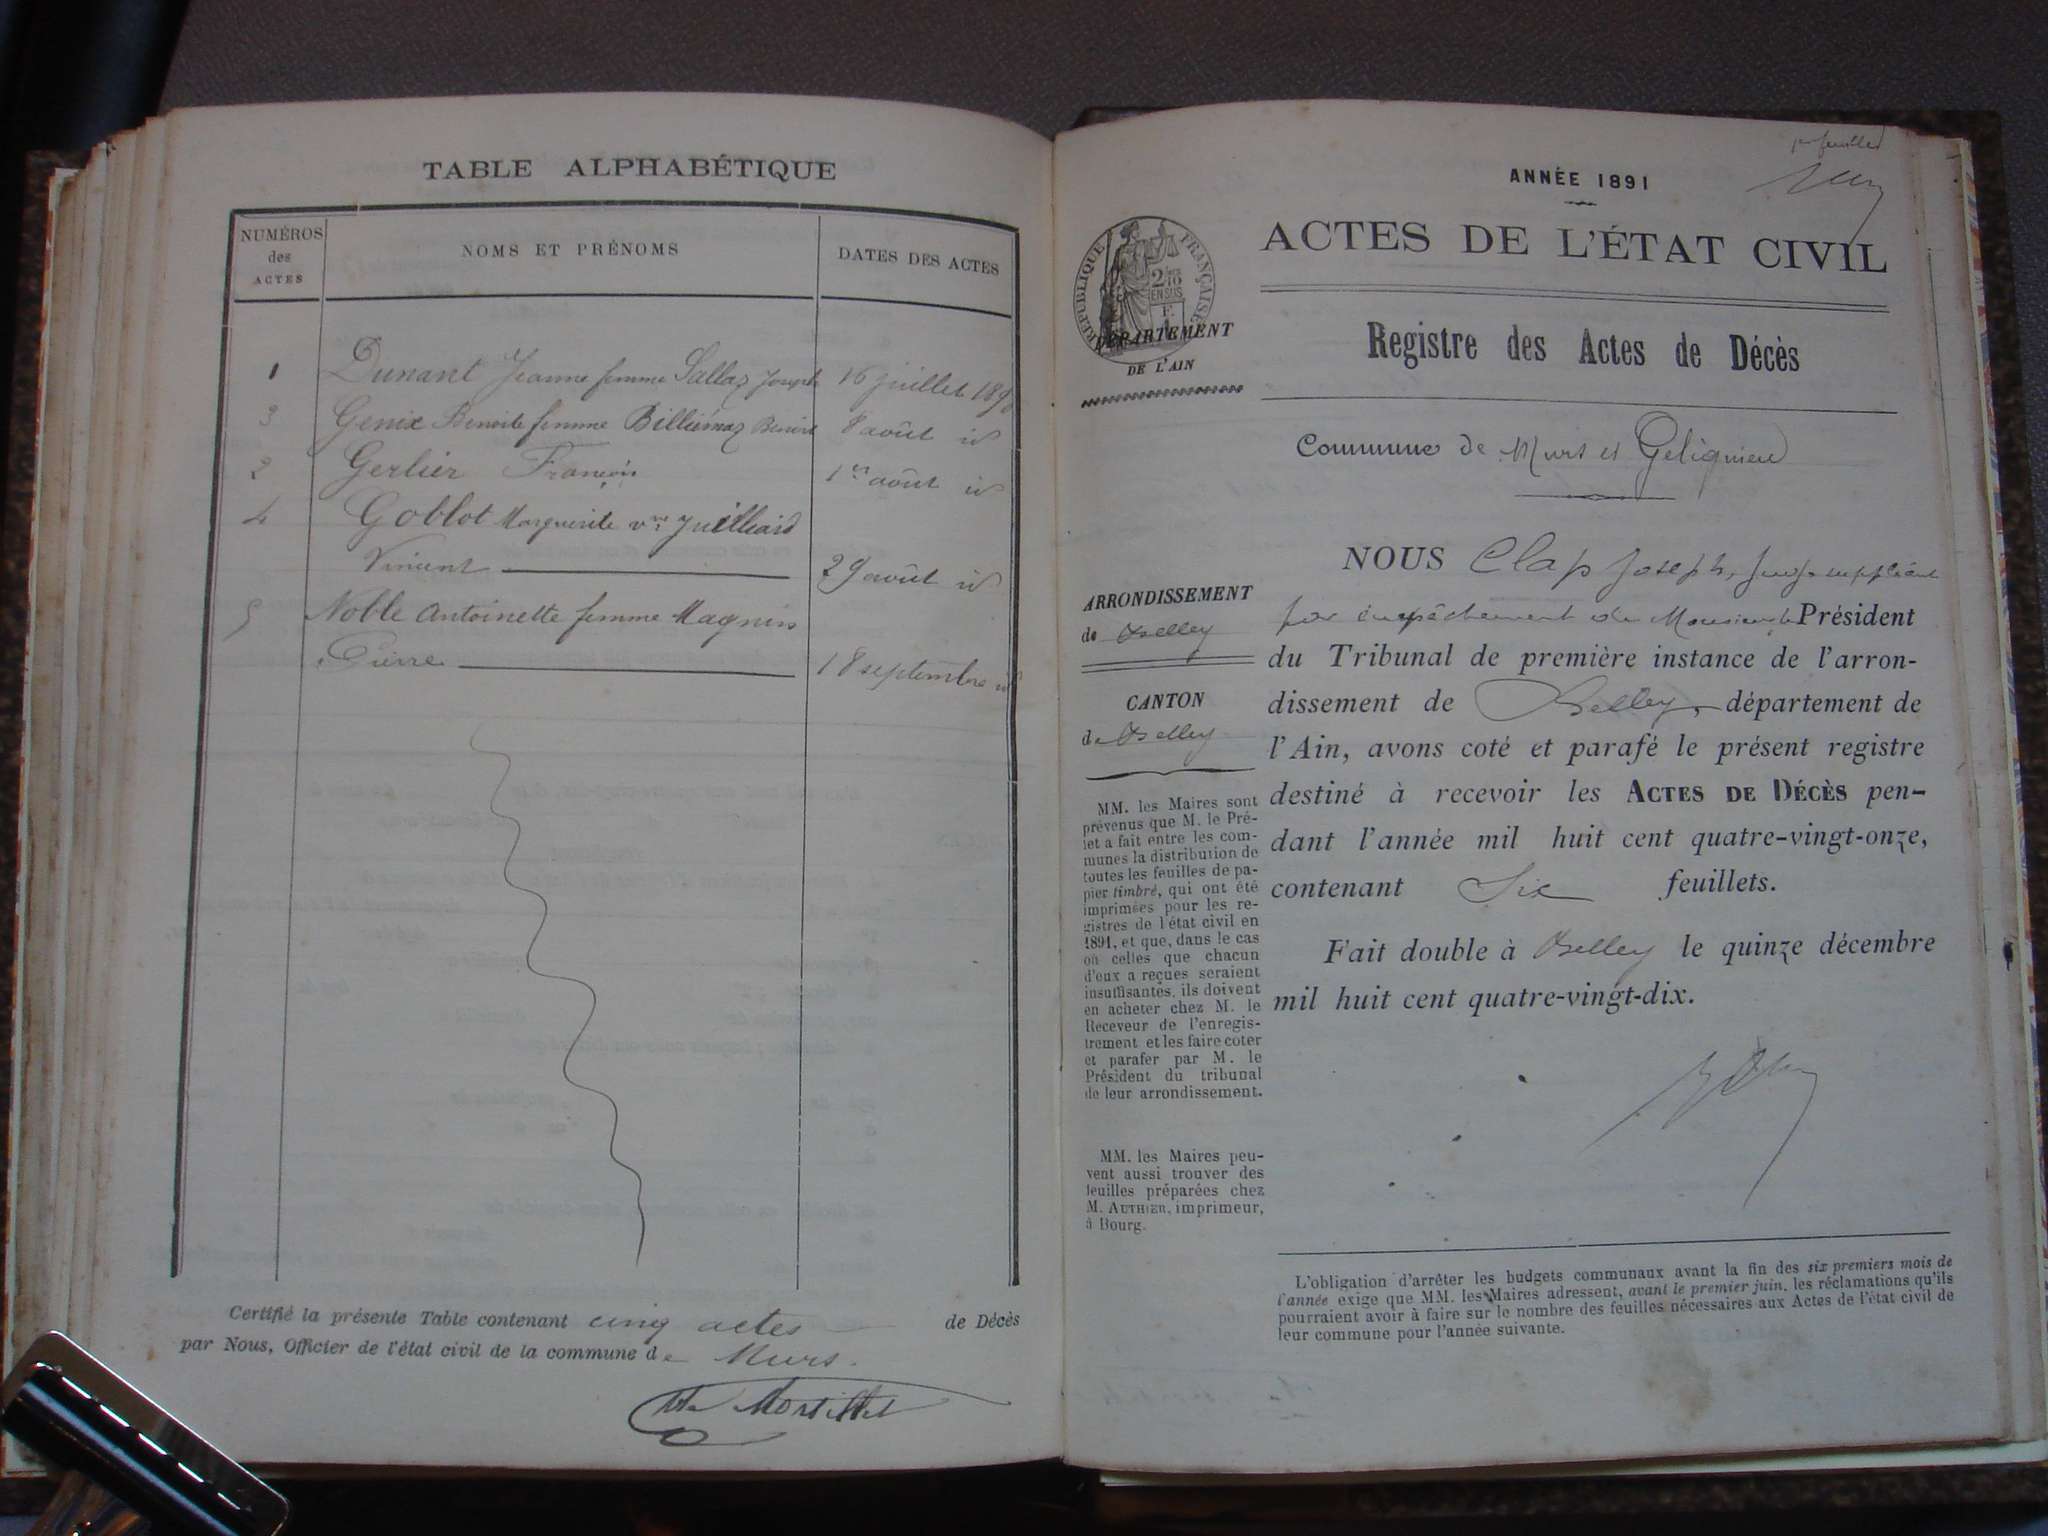 TABLE ALPHABÉTIQUE
NUMÉROS des ACTES
NOMS ET PRÉNOMS
DATES DES ACTES
1 Dunant Jeanne femme Sallaz Joseph 16 juillet 1890
3 Genix Benoite femme Billiémaz Benoit 8 août id
2 Gerlier François 1er août id
4 Goblot Marguerite vve Juilliard
Vincent 29 août id
5 Noble Antoinette femme Magnin
Pierre 18 septembre id
Certifié la présente Table contenant cinq actes de Décès
par Nous, Officier de l'état civil de la commune de Murs.
Mortillet
1er feuillet
ANNÉE 1891
ACTES DE L'ÉTAT CIVIL
RÉPUBLIQUE FRANÇAISE
2/10 EN SUS
DÉPARTEMENT
DE L'AIN
Registre des Actes de Décès
Commune de Murs et Gélignieu
ARRONDISSEMENT
de Belley
CANTON
de Belley
MM. les Maires sont
prévenus que M. le Pré-
fet a fait entre les com-
munes la distribution de
toutes les feuilles de pa-
pier timbré, qui ont été
imprimées pour les re-
gistres de l'état civil en
1891, et que, dans le cas
où celles que chacun
d'eux a reçues seraient
insuffisantes, ils doivent
en acheter chez M. le
Receveur de l'enregis-
trement et les faire coter
et parafer par M. le
Président du tribunal
de leur arrondissement.
MM. les Maires peu-
vent aussi trouver des
feuilles préparées chez
M. AUTHIER, imprimeur,
à Bourg.
NOUS Clap Joseph, juge suppléant
par empêchement de Monsieur le Président
du Tribunal de première instance de l'arron-
dissement de Belley, département de
l'Ain, avons coté et parafé le présent registre
destiné à recevoir les ACTES DE DÉCÈS pen-
dant l'année mil huit cent quatre-vingt-onze,
contenant Six feuillets.
Fait double à Belley le quinze décembre
mil huit cent quatre-vingt-dix.
L'obligation d'arrêter les budgets communaux avant la fin des six premiers mois de
l'année exige que MM. les Maires adressent, avant le premier juin, les réclamations qu'ils
pourraient avoir à faire sur le nombre des feuilles nécessaires aux Actes de l'état civil de
leur commune pour l'année suivante.